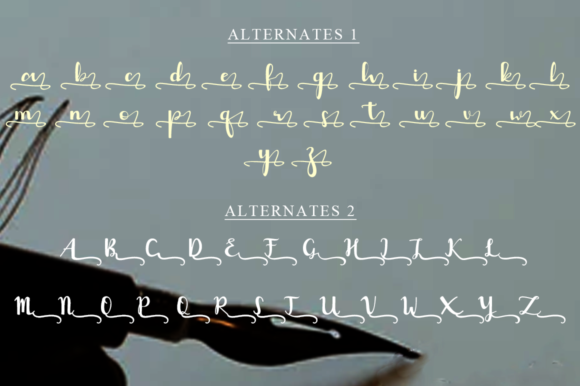 ALTERNATES 1
a b c d e f g h i j k l
m n o p q r s t u v w x
y z
ALTERNATES 2
A B C D E F G H I J K L
M N O P Q R S T U V W X Y Z